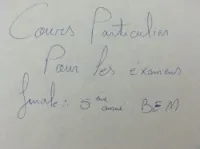 Cours Particulier
Pour les examens
finale : 5 ème année BEM